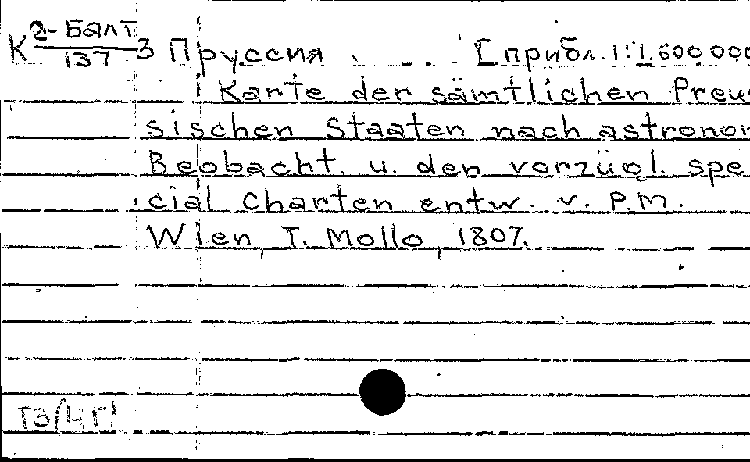 К 2-Балт/137 3 Пруссия . . . [прибл. 1:1.600 000
Karte der sämtlichen Preus
sischen Staaten nach astronom
Beobacht. u. den vorzügl. spe
cial Charten entw. v. P.M.
Wien, T. Mollo, 1807.